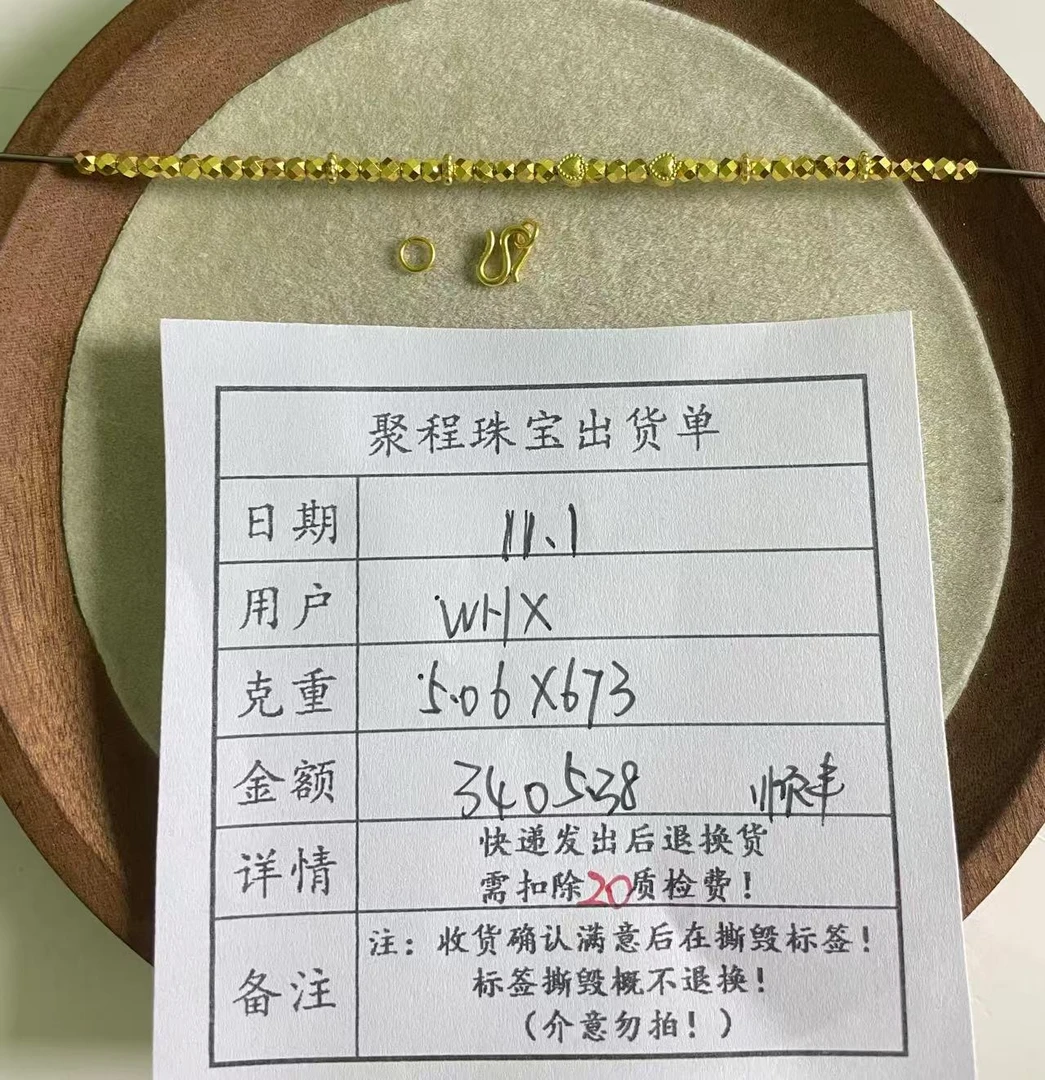 聚程珠宝出货单
日期 11.1
用户 WHX
克重 5.06X673
金额 3405.38 顺丰
详情 快递发出后退换货
需扣除20质检费！
备注 注：收货确认满意后在撕毁标签！
标签撕毁概不退换！
（介意勿拍！）